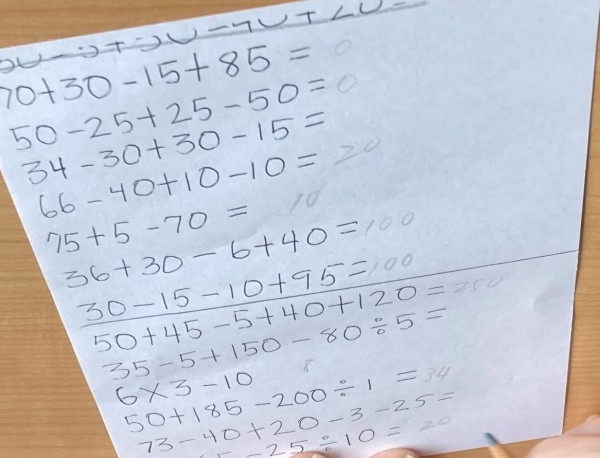 70+30-15+85 = 0
50-25+25-50= 0
34-30+30-15 =
66-40+10-10= 20
75+5-70 = 10
36+30-6+40=100
30-15-10+95=100
50+45-5+40+120=250
35-5+150-80÷5=
6×3-10 8
50+185-200÷1 = 34
73-40+20-3-25=
-25÷10= 20